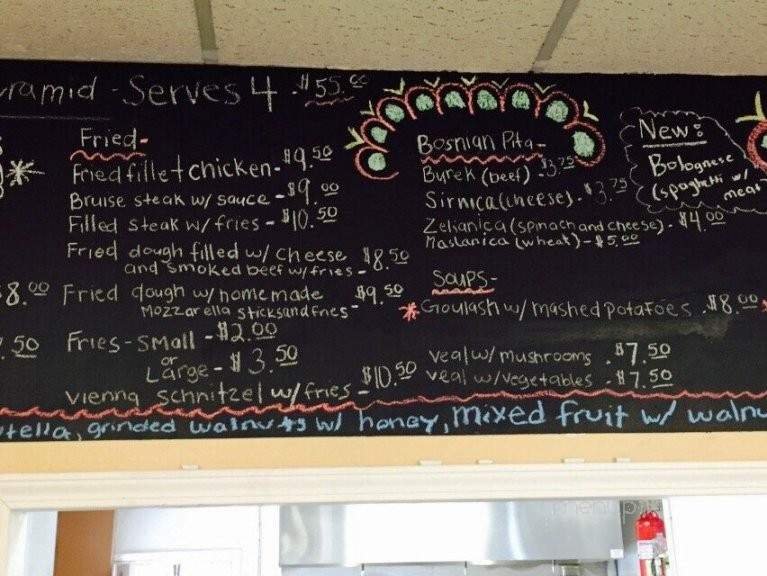 ramid - Serves 4 - $55.00
Fried-
Fried fillet chicken - $9.50
Bruise steak w/ sauce - $9.00
Filled steak w/ fries - $10.50
Fried dough filled w/ cheese $8.50
and smoked beef w/ fries -
8.00
Fried dough w/ homemade $9.50
Mozzarella sticks and fries -
.50
Fries - Small - $2.00
or
Large - $3.50
Vienna Schnitzel w/ fries - $10.50
Bosnian Pita-
Burek (beef) - $3.75
Sirnica (cheese) - $3.75
Zelianica (spinach and cheese) - $4.00
Maslanica (wheat) - $5.00
Soups-
Goulash w/ mashed potatoes . $8.00
veal w/ mushrooms . $7.50
veal w/ vegetables . $7.50
New:
Bolognese
(spaghetti w/
meat
tella, grinded walnuts w/ honey, mixed fruit w/ walnu